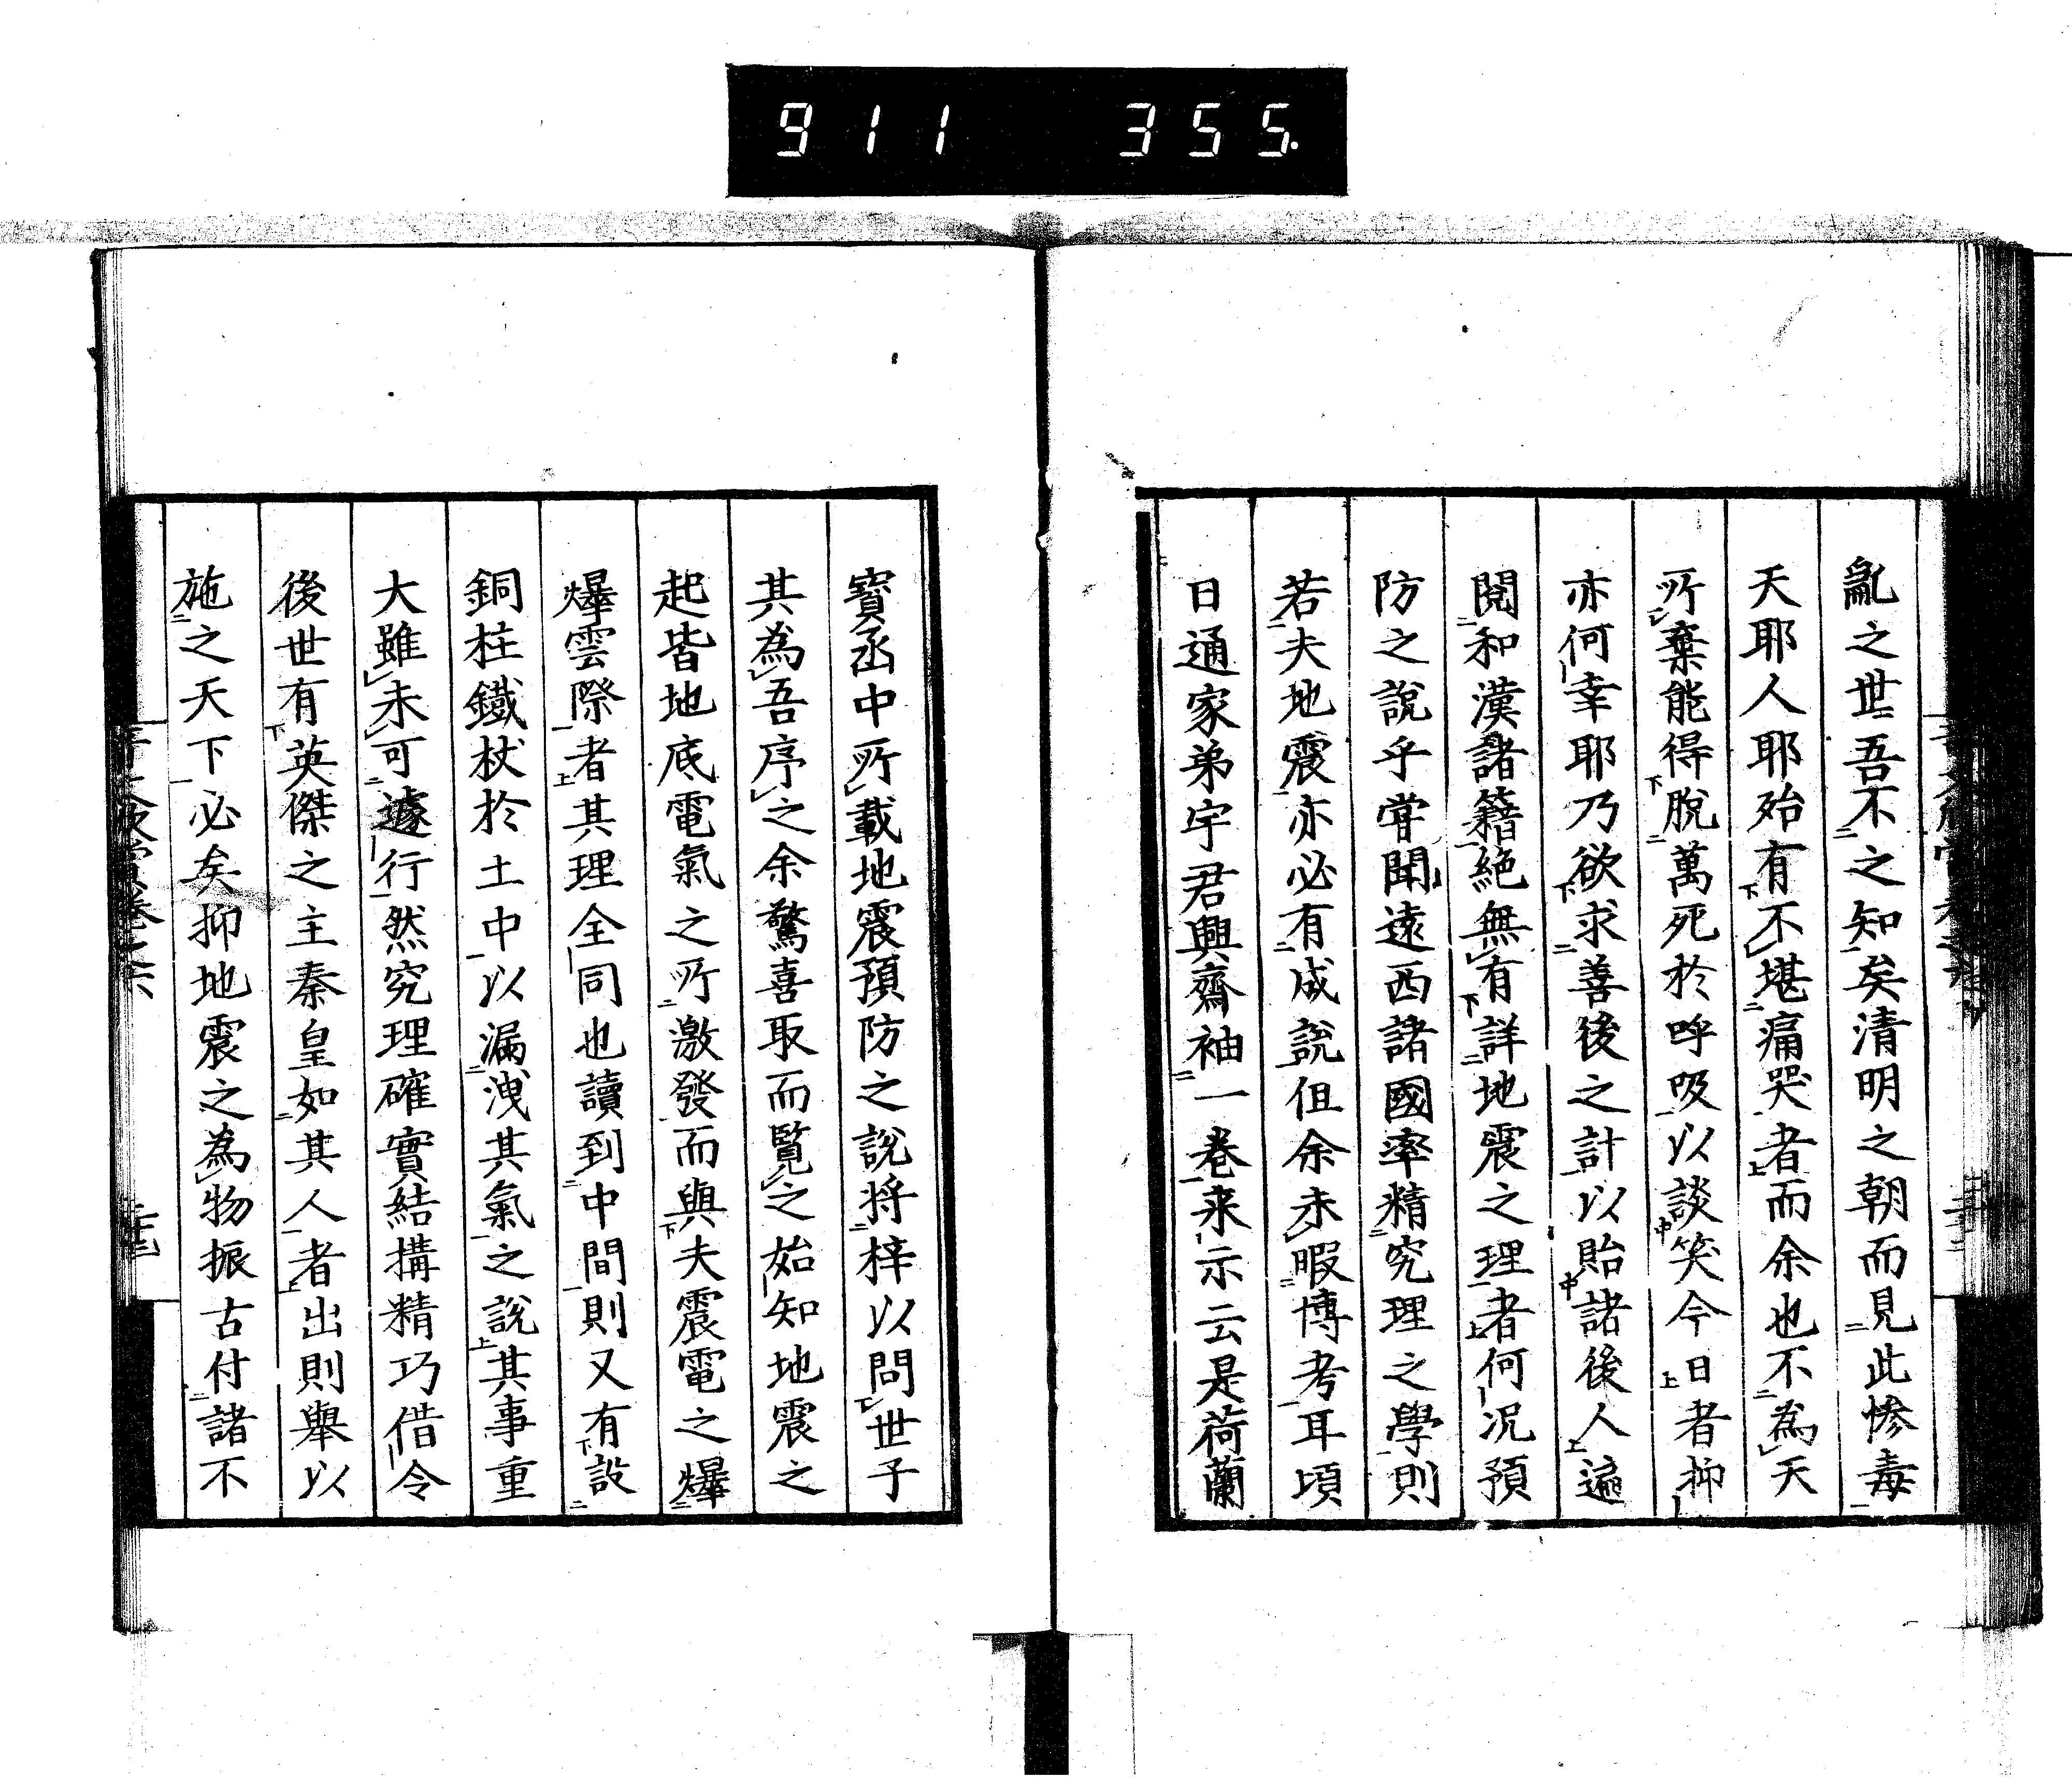 911 355.
亂之世吾不之知矣清明之朝而見此慘毒
天耶人耶殆有不堪痛哭者而余也不為天
所棄能得脫萬死於呼吸以談笑今日者抑
亦何幸耶乃欲求善後之計以貽諸後人遍
閱和漢諸籍絕無有詳地震之理者何況預
防之說乎嘗聞遠西諸國率精究理之學則
若夫地震亦必有成說但余未暇博考耳頃
日通家弟宇君興齋袖一卷来示云是荷蘭
寶函中所載地震預防之說將梓以問世子
其為吾序之余驚喜取而覧之始知地震之
起皆地底電氣之所激發而與夫震電之爆
爆雲際者其理全同也讀到中間則又有設
銅柱鐵杖於土中以漏洩其氣之說其事重
大雖未可遽行然究理確實結構精巧借令
後世有英傑之主秦皇如其人者出則舉以
施之天下必矣抑地震之為物振古付諸不